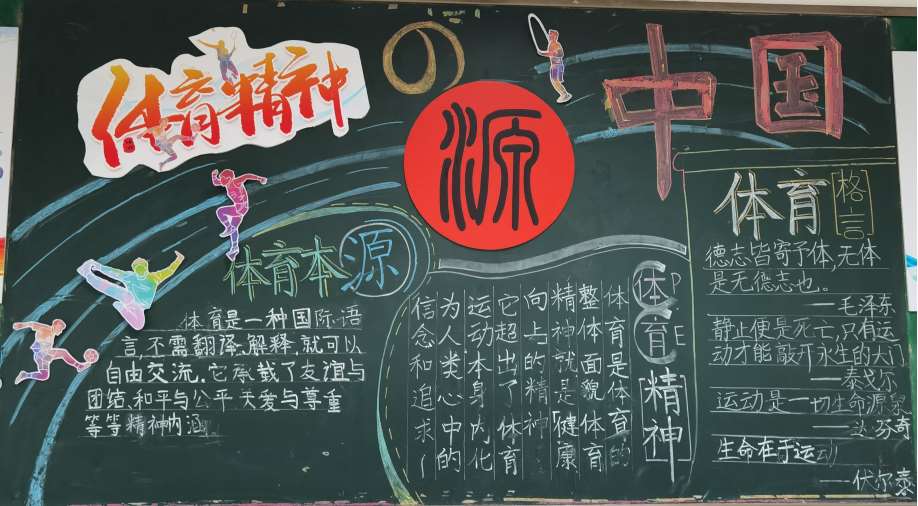 体育精神
の
源
中国
体育本源
体育是一种国际语
言,不需翻译、解释,就可以
自由交流.它承载了友谊与
团结、和平与公平、关爱与尊重
等等精神内涵
体育[精神]
PE
体育是体育的
整体面貌体育
精神就是"健康
向上的精神
它超出了体育
运动本身内化
为人类心中的
信念和追求~
体育[格言]
德志皆寄于体,无体
是无德志也。
——毛泽东
静止便是死亡,只有运
动才能敲开永生的大门
——泰戈尔
运动是一切生命源泉
——达·芬奇
生命在于运动
——伏尔泰